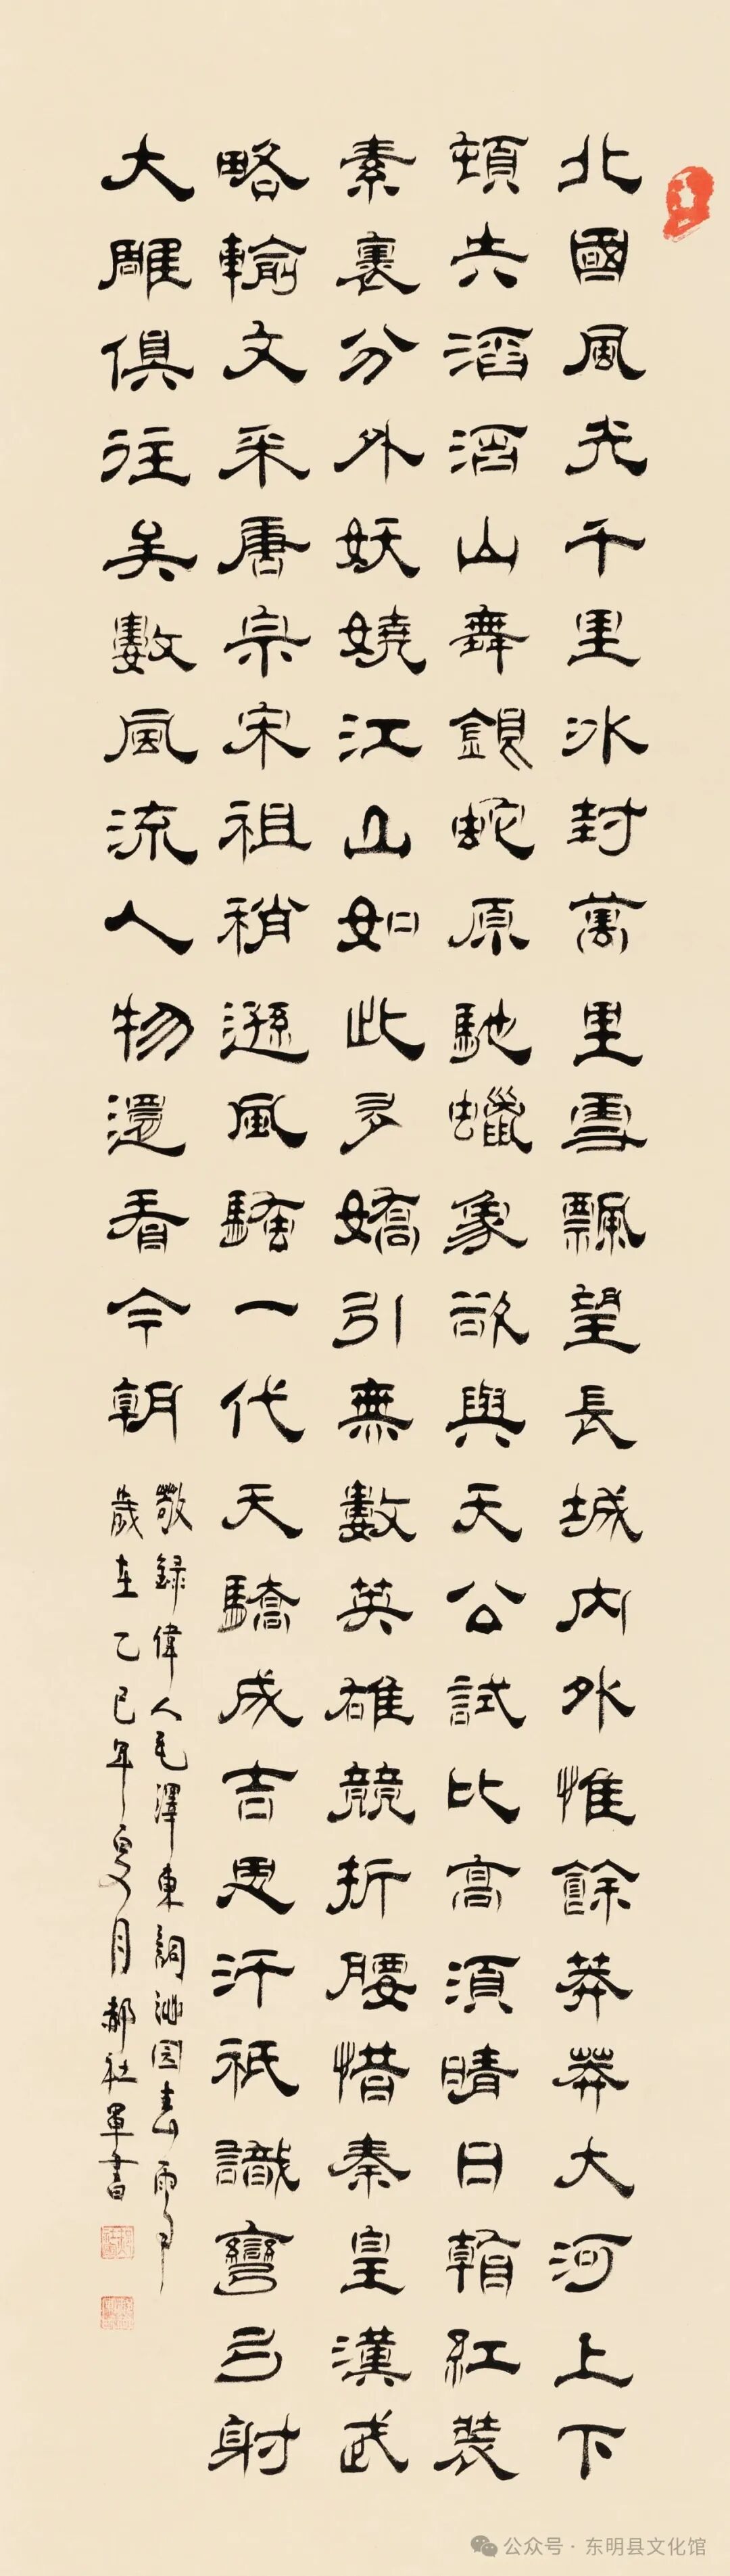 北國風光千里冰封萬里雪飄望長城內外惟餘莽莽大河上下
頓失滔滔山舞銀蛇原馳蠟象欲與天公試比高須晴日看紅裝
素裹分外妖嬈江山如此多嬌引無數英雄競折腰惜秦皇漢武
略輸文采唐宗宋祖稍遜風騷一代天驕成吉思汗祇識彎弓射
大雕俱往矣數風流人物還看今朝
敬錄偉人毛澤東詞沁园春雪
歲在乙巳年夏月郝社軍書
公众号·东明县文化馆